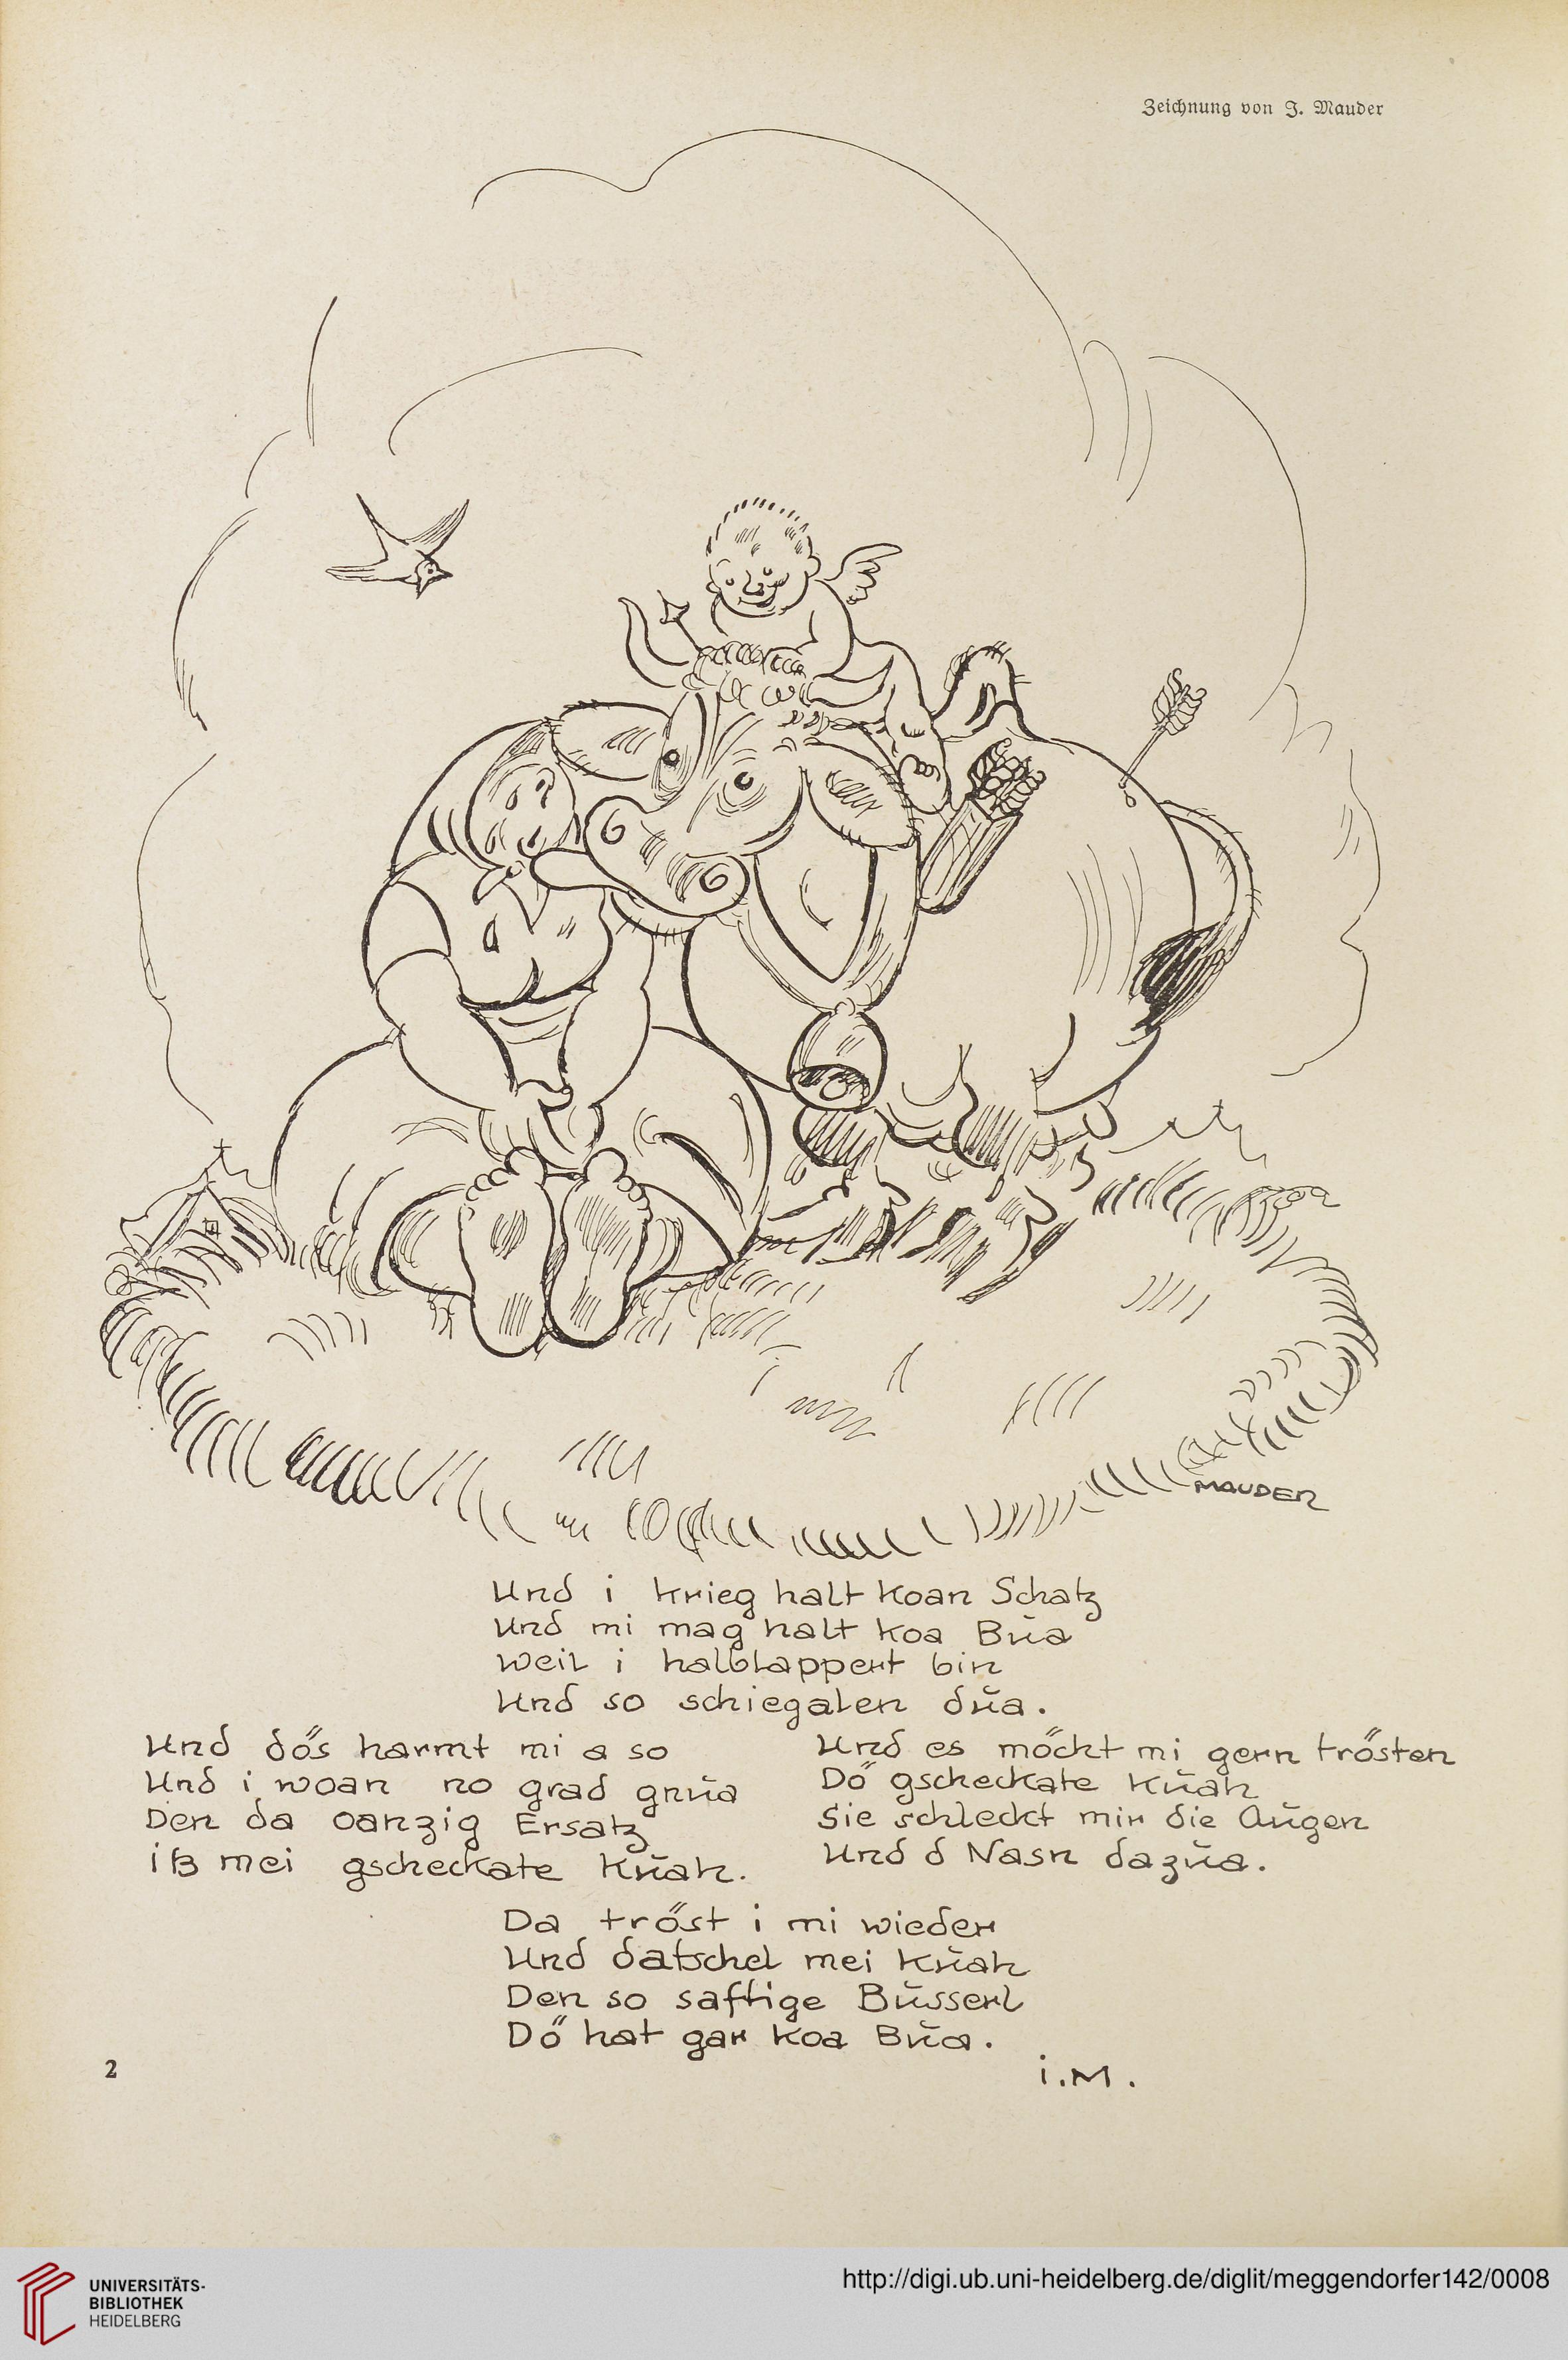 Zeichnung von J. Mauder
MAUDER
Und i krieg halt koan Schatz
Und mi mag halt koa Bua
Weil i halblappert bin
Und so schiegalen dua.
Und dös harmt mi a so
Und i woan no grad gnua
Den da oanzig Ersatz
iß mei gscheckate Kuah.
Und es möcht mi gern trösten
Dö gscheckate Kuah
Sie schleckt mir die Augen
Und d Nasn dazua.
Da tröst i mi wieder
Und datschel mei Kuah
Den so saftige Busserl
Dö hat gar koa Bua.
i.M.
2
UNIVERSITÄTS-
BIBLIOTHEK
HEIDELBERG
http://digi.ub.uni-heidelberg.de/diglit/meggendorfer142/0008